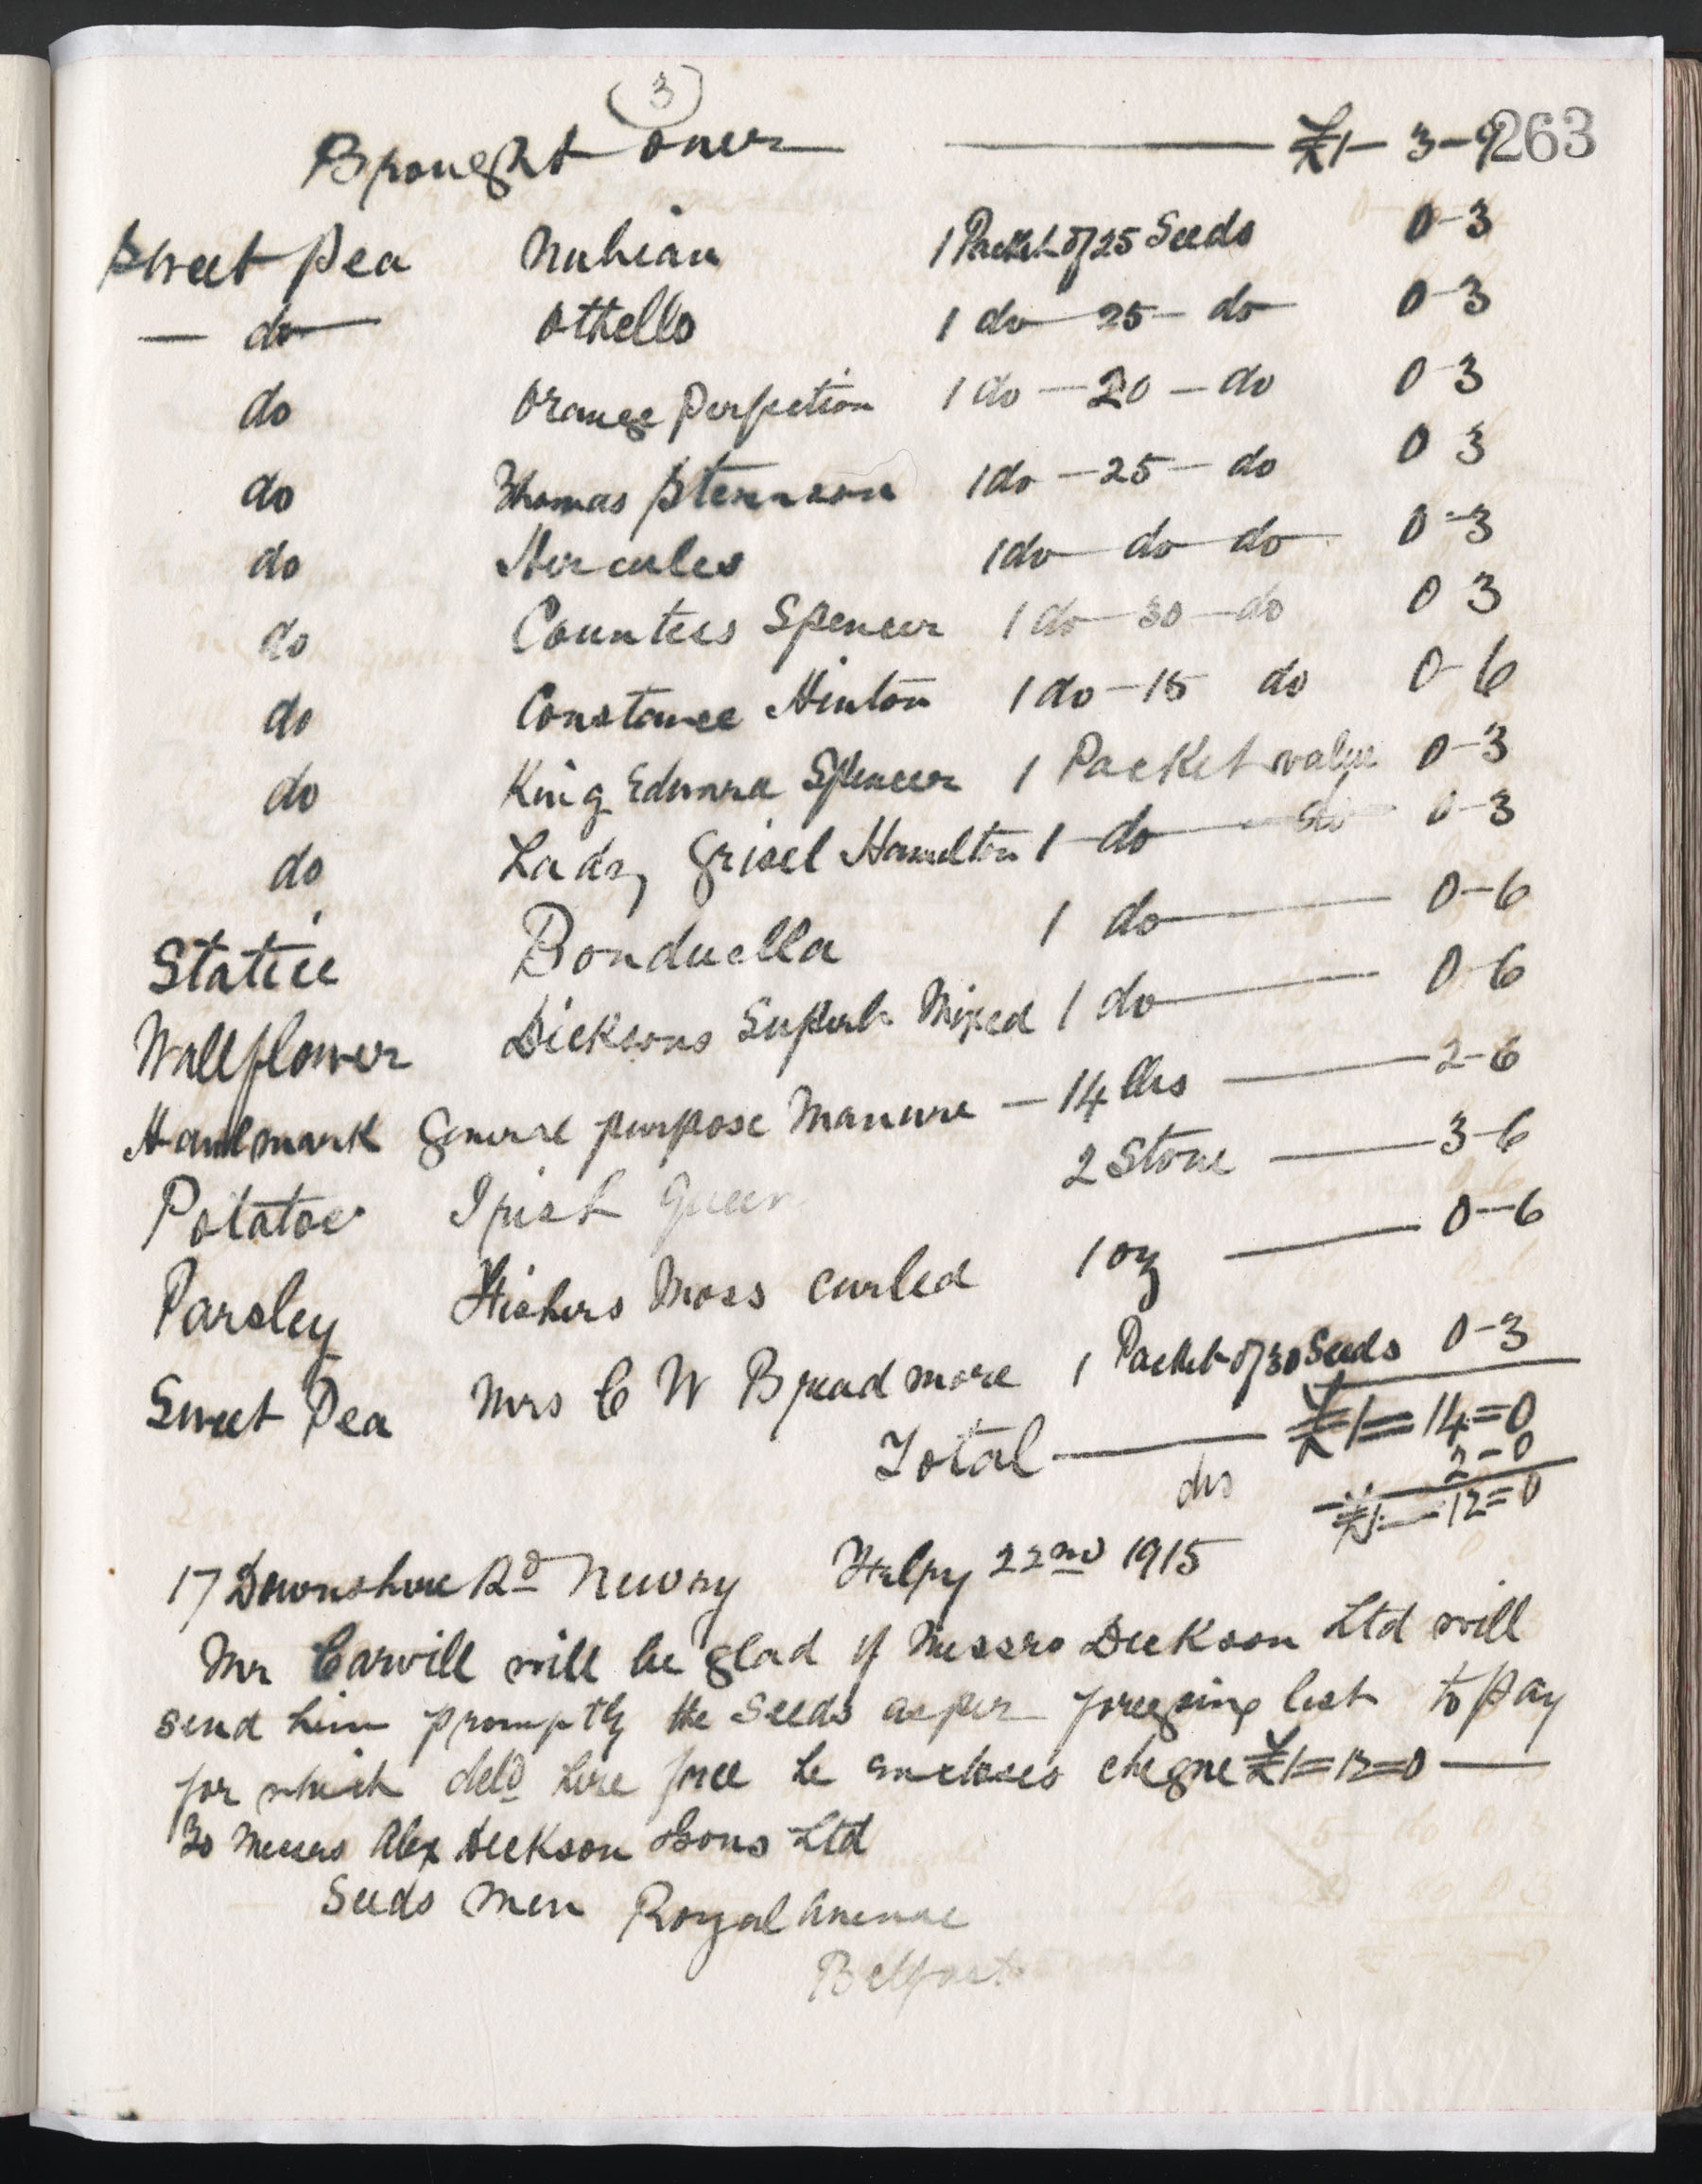 (3)
Brought over £1-3-9 263
Sweet Pea Nubian 1 Packet of 25 Seeds 0-3
— do Othello 1 do 25 - do 0-3
do Orange Perfection 1 do - 20 - do 0 3
do Thomas Stevenson 1 do - 25 - do 0 3
do Hercules 1 do do do 0-3
do Countess Spencer 1 do 30 do 0 3
do Constance Hinton 1 do - 15 do 0-6
do King Edward Spencer 1 Packet value 0-3
do Lady Grisel Hamelton 1 do do 0-3
Statice Bonduella 1 do 0-6
Wallflower Dicksons Superb Mixed 1 do 0-6
Hawlmark General purpose Manure - 14 lbs 2-6
Potatoe Irish Queen 2 Stone 3-6
Parsley Moss curled 1 oz 0-6
Sweet Pea Mrs C W Breadmore 1 Packet of 30 Seeds 0-3
Total £1=14=0
dis 2-0
£1-12=0
17 Downshire Rd Newry 22nd 1915
Mr Carvill will be glad if Messrs Dickson Ltd will
send him promptly the Seeds as per foregoing list to pay
for which deld here free he encloses cheque £1=12=0
To Messrs Alex Dickson & Sons Ltd
Seeds Men Royal Avenue
Belfast